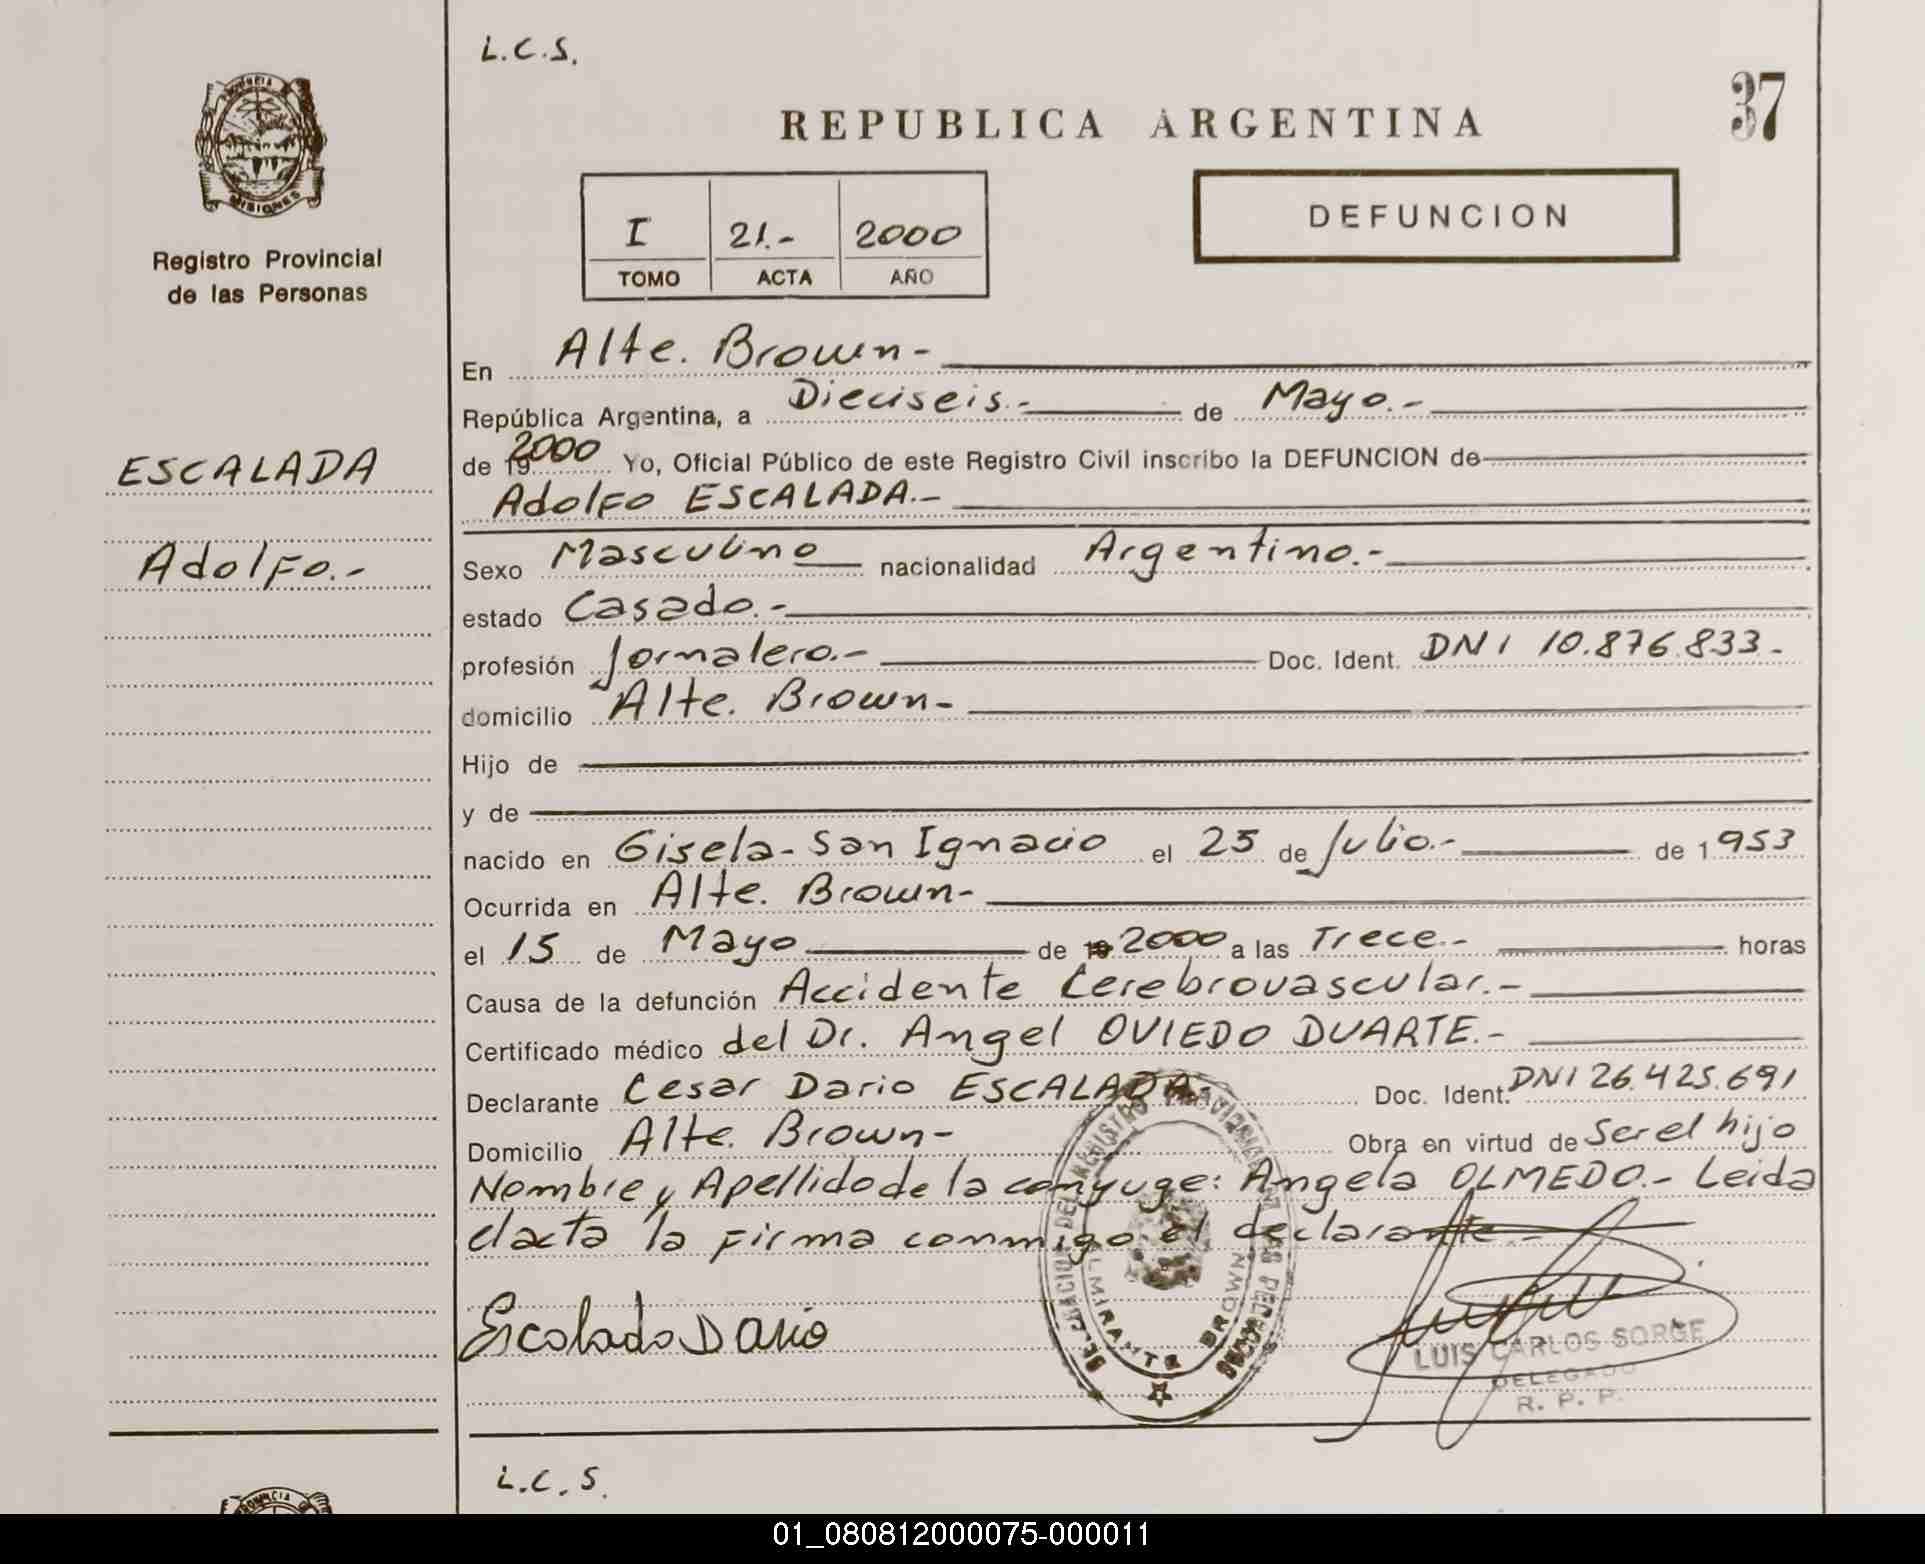 L.C.S.
PROVINCIA DE
MISIONES
REPUBLICA ARGENTINA
37
Registro Provincial
de las Personas
I 21.- 2000
TOMO ACTA AÑO
DEFUNCION
ESCALADA
Adolfo.-
En Alte. Brown-
República Argentina, a Dieciseis.- de Mayo.-
de 19 2000 Yo, Oficial Público de este Registro Civil inscribo la DEFUNCION de
Adolfo ESCALADA.-
Sexo Masculino nacionalidad Argentino.-
estado Casado.-
profesión Jornalero.- Doc. Ident. DNI 10.876.833-
domicilio Alte. Brown-
Hijo de
y de
nacido en Gisela-San Ignacio el 25 de Julio.- de 1953
Ocurrida en Alte. Brown-
el 15 de Mayo de 19 2000 a las Trece.- horas
Causa de la defunción Accidente Cerebrovascular.-
Certificado médico del Dr. Angel OVIEDO DUARTE.-
Declarante Cesar Dario ESCALADA Doc. Ident. DNI 26.425.691
Domicilio Alte. Brown- Obra en virtud de Ser el hijo
Nombre y Apellido de la conyuge: Angela OLMEDO.- Leida
elacta la firma conmigo el declarante-
Escalada Dario
DEL REGISTRO PROVINCIAL DE LAS PERSONAS
ALMIRANTE BROWN
LUIS CARLOS SORGE
DELEGADO
R. P. P.
L.C.S.
PROVINCIA
01_080812000075-000011